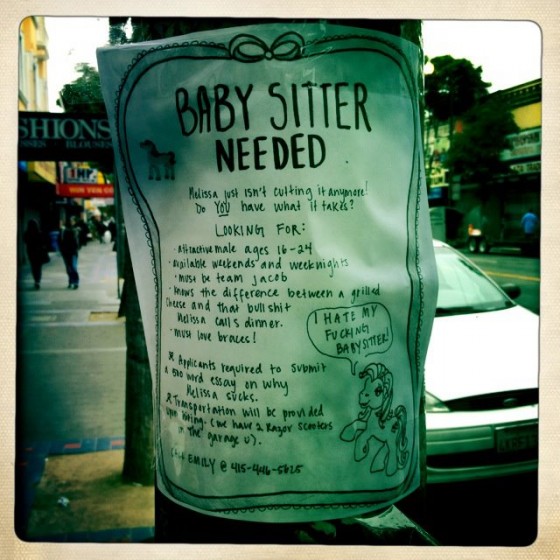 BABY SITTER
NEEDED
Melissa just isn't cutting it anymore!
Do YOU have what it takes?
LOOKING FOR:
· Attractive male ages 16-24
· available weekends and weeknights
· must be team jacob
· knows the difference between a grilled
cheese and that bullshit
Melissa calls dinner.
· must love braces!
* Applicants required to submit
a 500 word essay on why
Melissa sucks.
* Transportation will be provided
upon hiring. (we have 2 Razor Scooters
in the garage
EMILY @ 415-446-5625
I HATE MY
FUCKING
BABYSITTER!
SHIONS
SSES BLOUSES